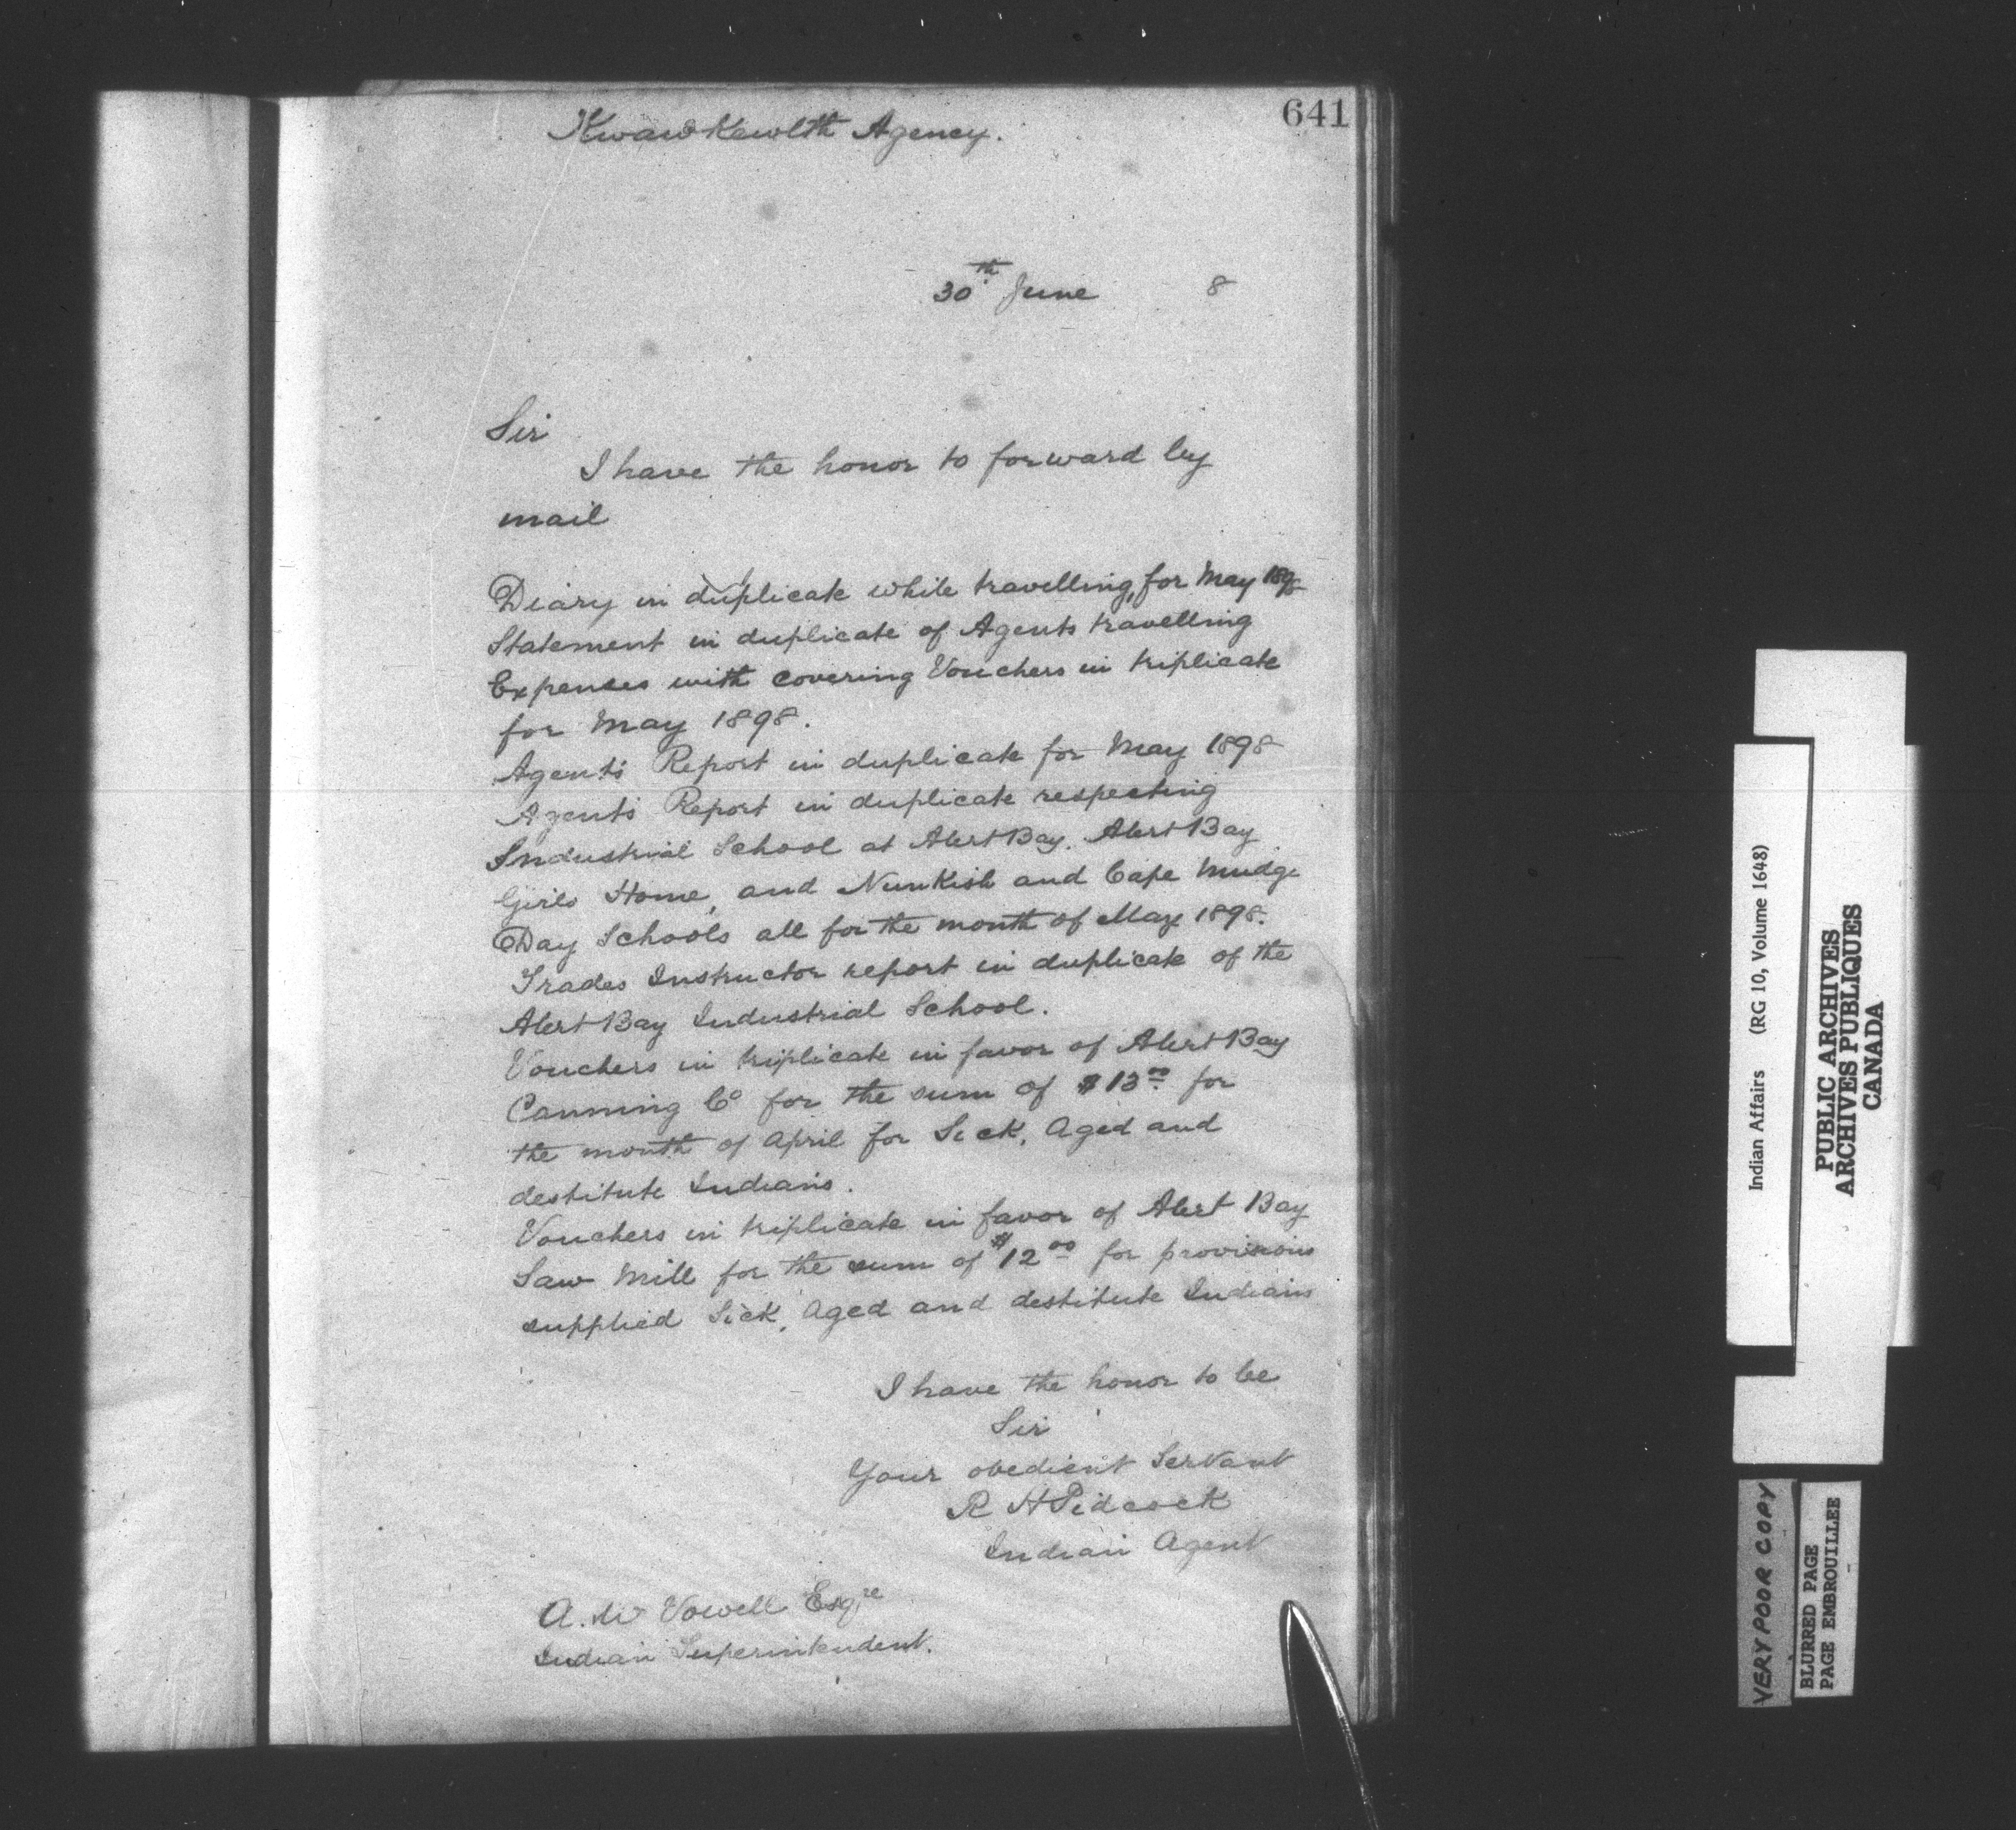 641
Kwawkewlth Agency.
30th June 8
Sir
I have the honor to forward by
mail
Diary in duplicate while travelling, for May 1898
Statement in duplicate of Agents travelling
Expenses with covering Vouchers in triplicate
for May 1898.
Agents Report in duplicate for May 1898
Agents Report in duplicate respecting
Industrial School at Alert Bay. Alert Bay
Girls Home, and Nimkish and Cape Mudge
Day Schools all for the month of May 1898.
Trades Instructor report in duplicate of the
Alert Bay Industrial School.
Vouchers in triplicate in favor of Alert Bay
Canning Co for the sum of $13.00 for
the month of April for Sick, Aged and
destitute Indians.
Vouchers in triplicate in favor of Alert Bay
Saw Mill for the sum of $12.00 for provisions
supplied Sick, Aged and destitute Indians
I have the honor to be
Sir
Your obedient Servant
R H Pidcock
Indian Agent
A. W Vowell Esqre
Indian Superintendent.
Indian Affairs (RG 10, Volume 1648)
PUBLIC ARCHIVES
ARCHIVES PUBLIQUES
CANADA
VERY POOR COPY
BLURRED PAGE
PAGE EMBROUILLEE